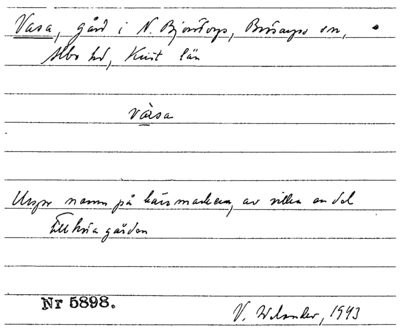 Vasa, gård i N. Björstorp, Brösarps sn,
Albo hd, Krist län
vàsa
Urspr namn på kärrmarken, av vilken en del
tillhör gården
Nr 5898.
V. Wilander, 1943